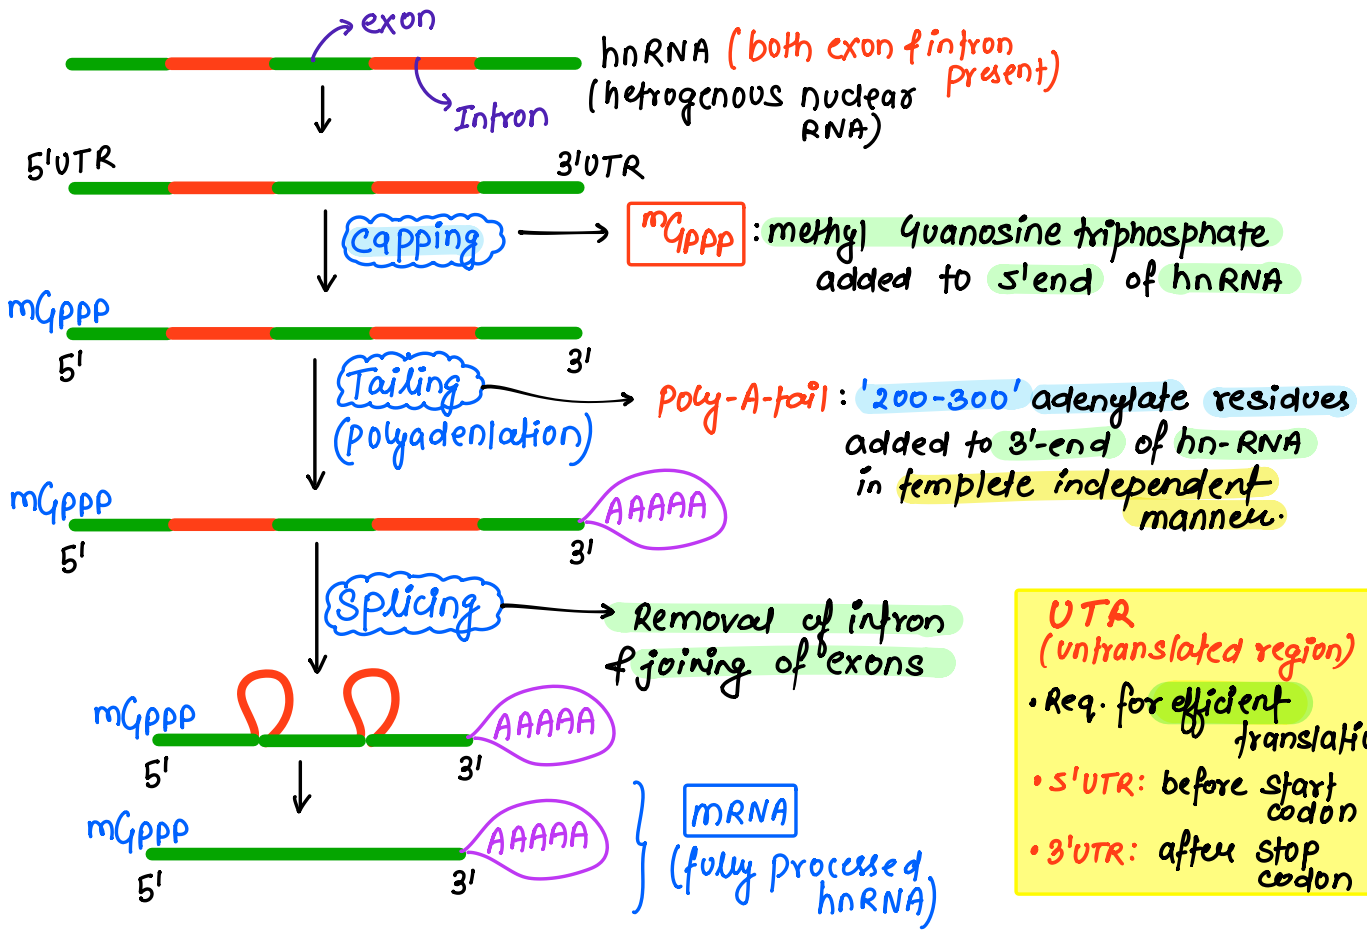 exon
hnRNA (both exon & intron
present)
(hetrogenous nuclear
RNA)
Intron
5'UTR
3'UTR
Capping
mGppp : methyl Guanosine triphosphate
added to 5'end of hnRNA
mGppp
5'
3'
Tailing
(polyadenlation)
Poly-A-tail : '200-300' adenylate residues
added to 3'-end of hn-RNA
in templete independent
manner.
mGppp
AAAAA
5'
3'
Splicing
Removal of intron
& joining of exons
mGppp
AAAAA
5'
3'
mGppp
AAAAA
5'
3'
mRNA
(fully processed
hnRNA)
UTR
(untranslated region)
• Req. for efficient
translati
• 5'UTR: before start
codon
• 3'UTR: after stop
codon